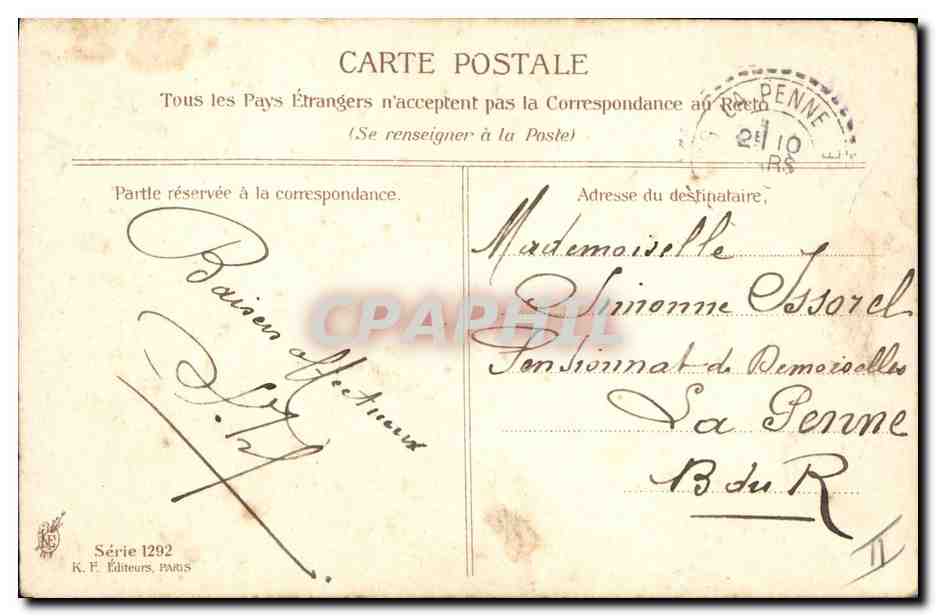 CARTE POSTALE
Tous les Pays Étrangers n'acceptent pas la Correspondance au Recto
(Se renseigner à la Poste)
LA PENNE
10
Partie réservée à la correspondance.
Baisers affectueux
Adresse du destinataire,
Mademoiselle
Simonne Issorel
Pensionnat de Demoiselles
La Penne
B du R
CPAPHIL
KE
Série 1292
K. F. Éditeurs, PARIS
II